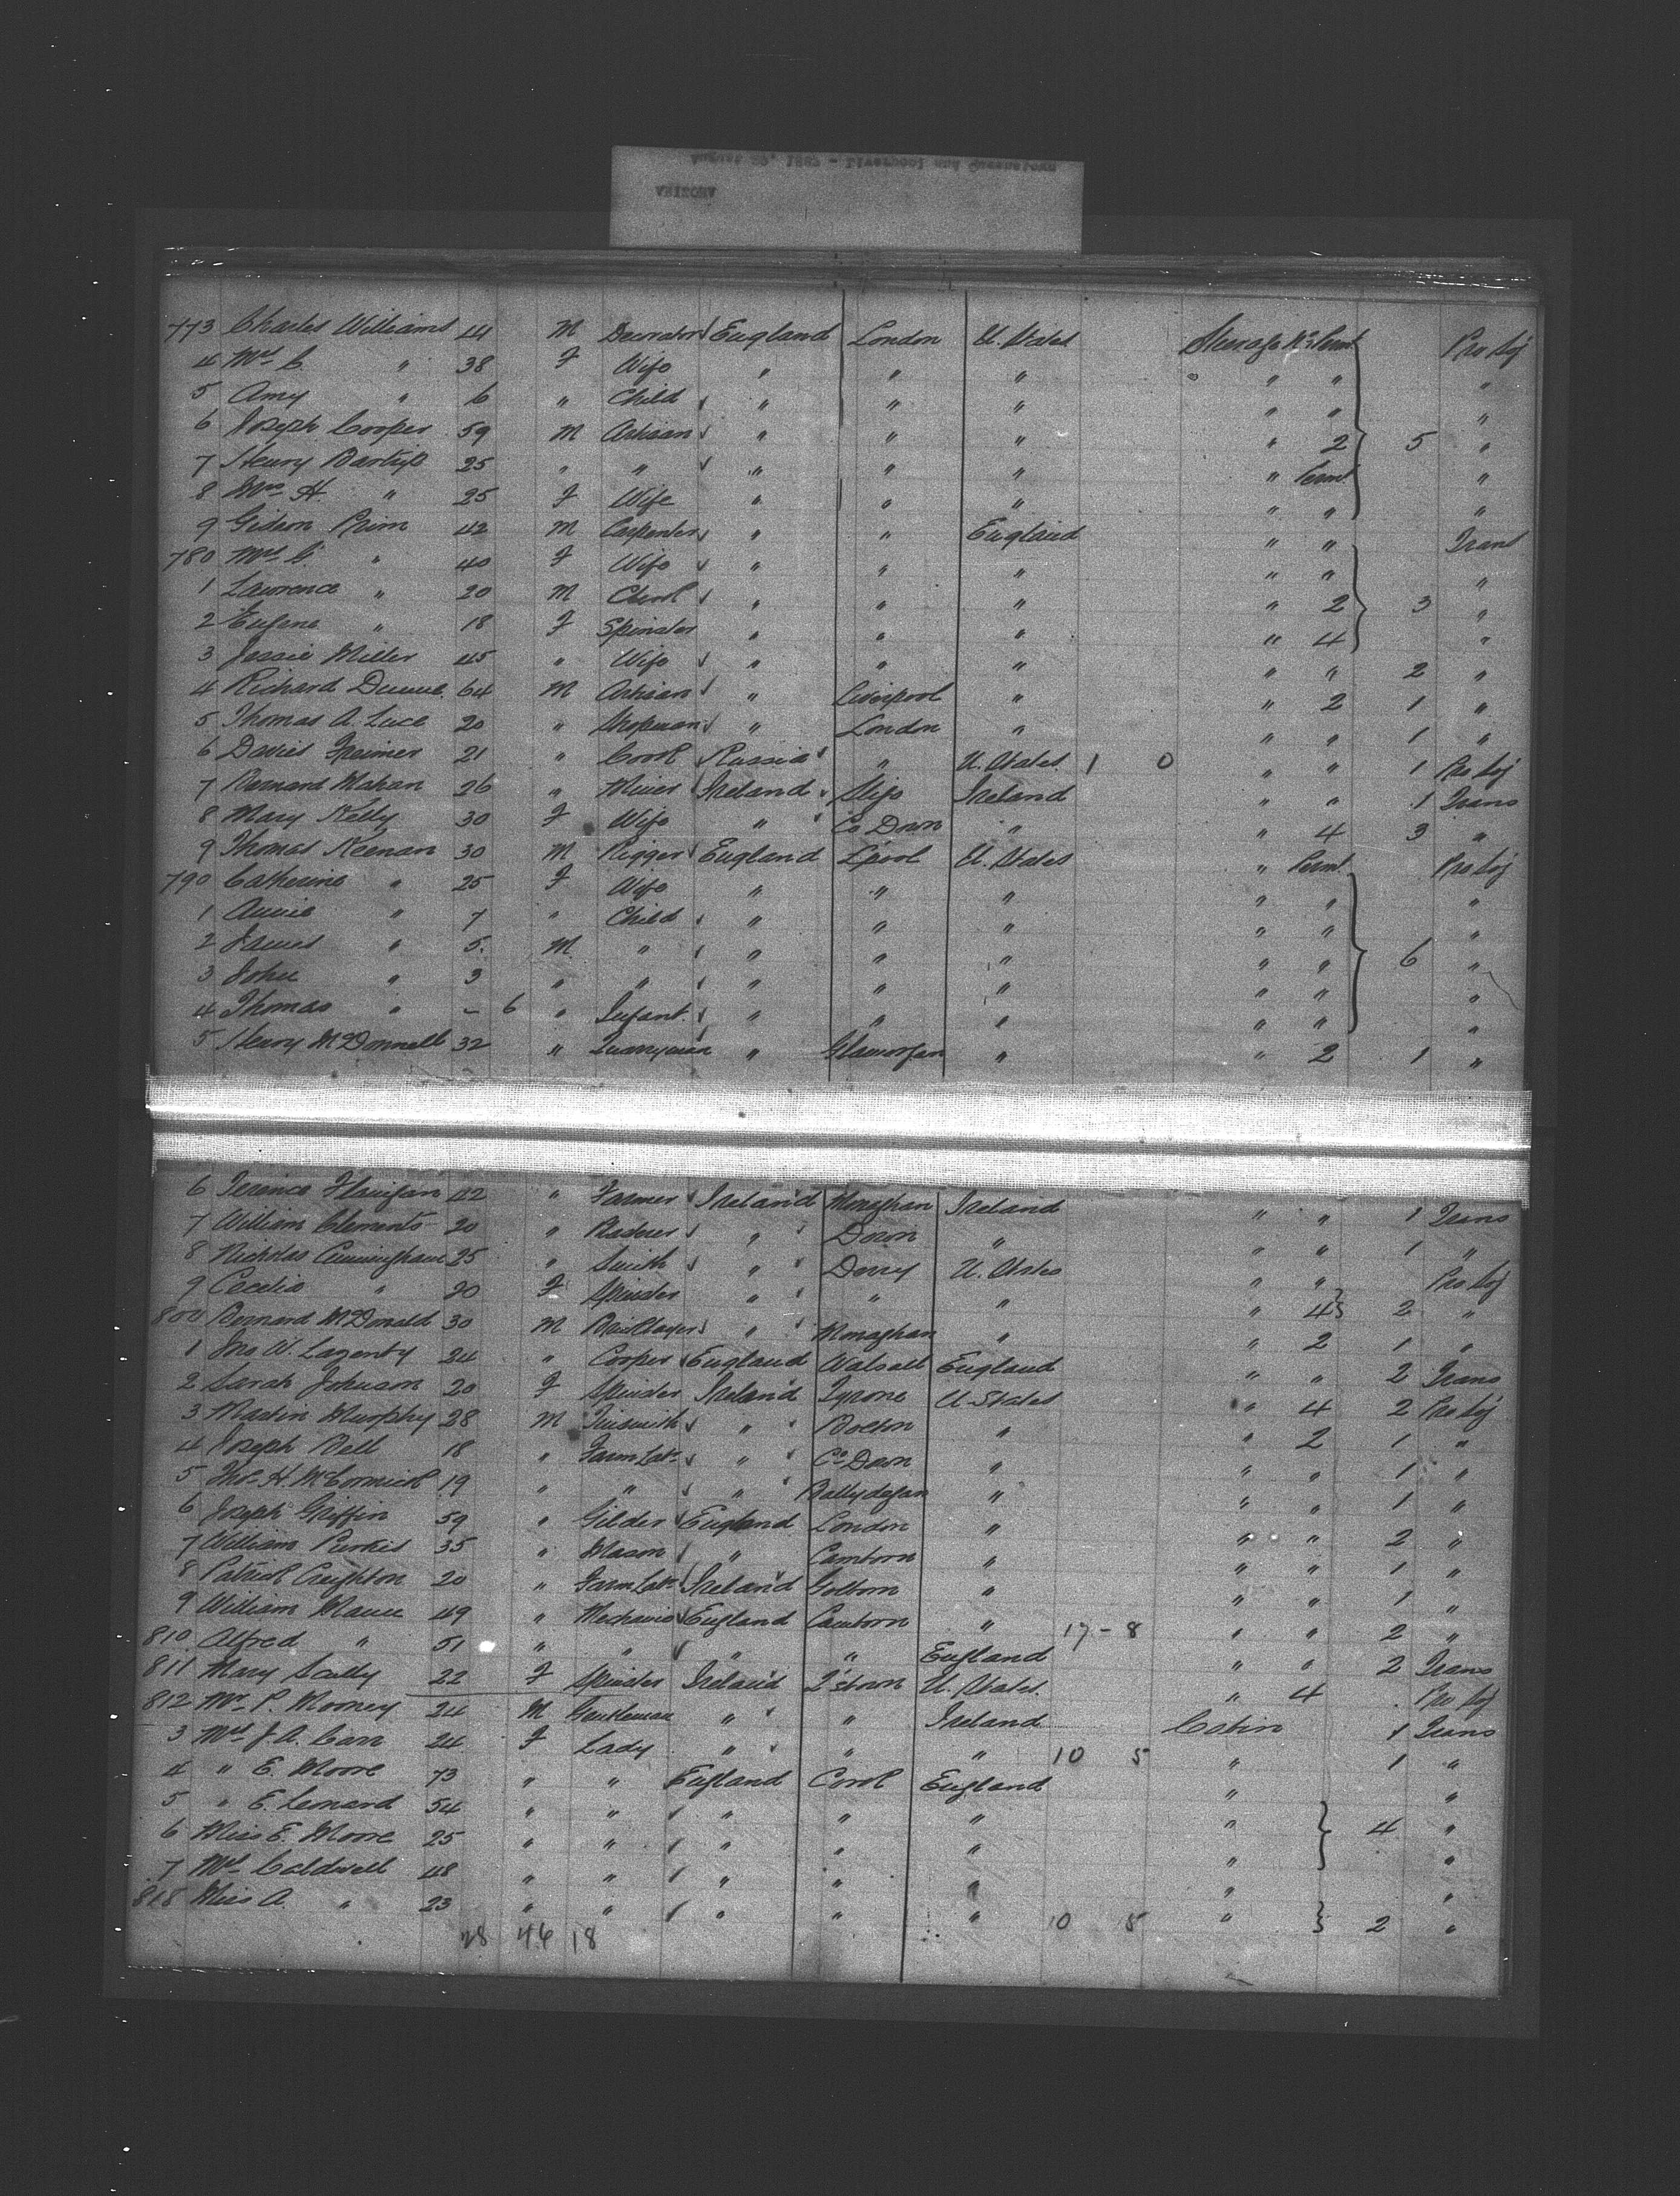 August 27, 1887 - Liverpool and Queenstown
ARIZONA
773 Charles Williams 41 M Decorator England London U. States Steerage Pro Soj
4 Mrs C. " 38 F Wife " " " " " "
5 Amy " 6 " Child " " " " " "
6 Joseph Cooper 59 M Artisan " " " " 2 5 "
7 Henry 25 " " " " " " Permt "
8 Mrs H. " 25 F Wife " " " " " "
9 Gideon Prim 42 M Carpenter " " England " " Trans
780 Mrs G. " 40 F Wife " " " " " "
1 Lawrence " 20 M Clerk " " " " 2 3 "
2 Eugene " 18 F Spinster " " " " 4 "
3 Jessie Miller 45 " Wife " " " " " 2 "
4 Richard Dunne 64 M Artisan " Liverpool " " 2 1 "
5 Thomas A. Luce 20 " Shopman " London " " " 1 "
6 David 21 " Cook Russia " U. States 1 0 " " 1 Pro Soj
7 Bernard Mahan 26 " Miner Ireland Sligo Ireland " " 1 Trans
8 Mary Kelly 30 F Wife " Co Down " " 4 3 "
9 Thomas Keenan 30 M Rigger England Lpool U. States " Permt Pro Soj
790 Catherine " 25 F Wife " " " " " "
1 Annie " 7 " Child " " " " " "
2 James " 5. M " " " " " " 6 "
3 John " 3 " " " " " " " "
4 Thomas " - 6 " Infant. " " " " " "
5 Henry McDonnell 32 " Quarryman " Glamorgan " " 2 1 "
6 Terence Flanigan 42 " Farmer Ireland Monaghan Ireland " " 1 Trans
7 William Clements 20 " " Down " " " 1 "
8 Nicholas Cunningham 25 " Smith " Derry U. States " " Pro Soj
9 Cecelia " 20 F Spinster " " " " 4 2 "
800 Bernard McDonald 30 M Bricklayer " Monaghan " " 2 1 "
1 Jno W. Lagenby 24 " Cooper England Walsall England " " 2 Trans
2 Sarah Johnson 20 F Spinster Ireland Tyrone U. States " 4 2 Pro Soj
3 Martin Murphy 28 M Tinsmith " Bolton " " 2 1 "
4 Joseph Bell 18 " Farm Labr " Co Down " " " 1 "
5 Thos H. McCormick 19 " " " " " " 1 "
6 Joseph Griffin 59 " Gilder England London " " " 2 "
7 William Purkis 35 " Mason " Camborn " " " 1 "
8 Patrick Creighton 20 " Farm Labr Ireland Golborn " " " 1 "
9 William Mann 49 " Mechanic England Camborn " 17 - 8 " " 2 "
810 Alfred " 51 " " " " England " " 2 Trans
811 Mary Scully 22 F Spinster Ireland Q'stown U. States. " 4 . Pro Soj
812 Mr. P. Mooney 24 M Gentleman " " Ireland Cabin 1 Trans
3 Mrs J. A. Carr 24 F Lady " " " 10 5 " 1 "
4 " E. Moore 73 " " England Cork England " "
5 " E. Leonard 54 " " " " " " "
6 Miss E. Moore 25 " " " " " " 4 "
7 Mrs Caldwell 48 " " " " " " "
818 Miss A. " 23 " " " " " 10 5 " 2 "
28 46 18